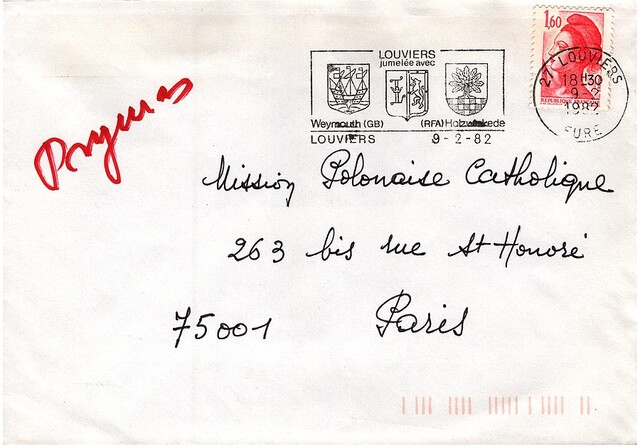 1,60
REPUBLIQUE
LOUVIERS
jumelée avec
Weymouth (GB) (RFA) Holzwickede
LOUVIERS 9-2-82
27 LOUVIERS
18H30
9-2
1982
EURE
Prymas
Mission Polonaise Catholique
263 bis rue St Honoré
75001 Paris